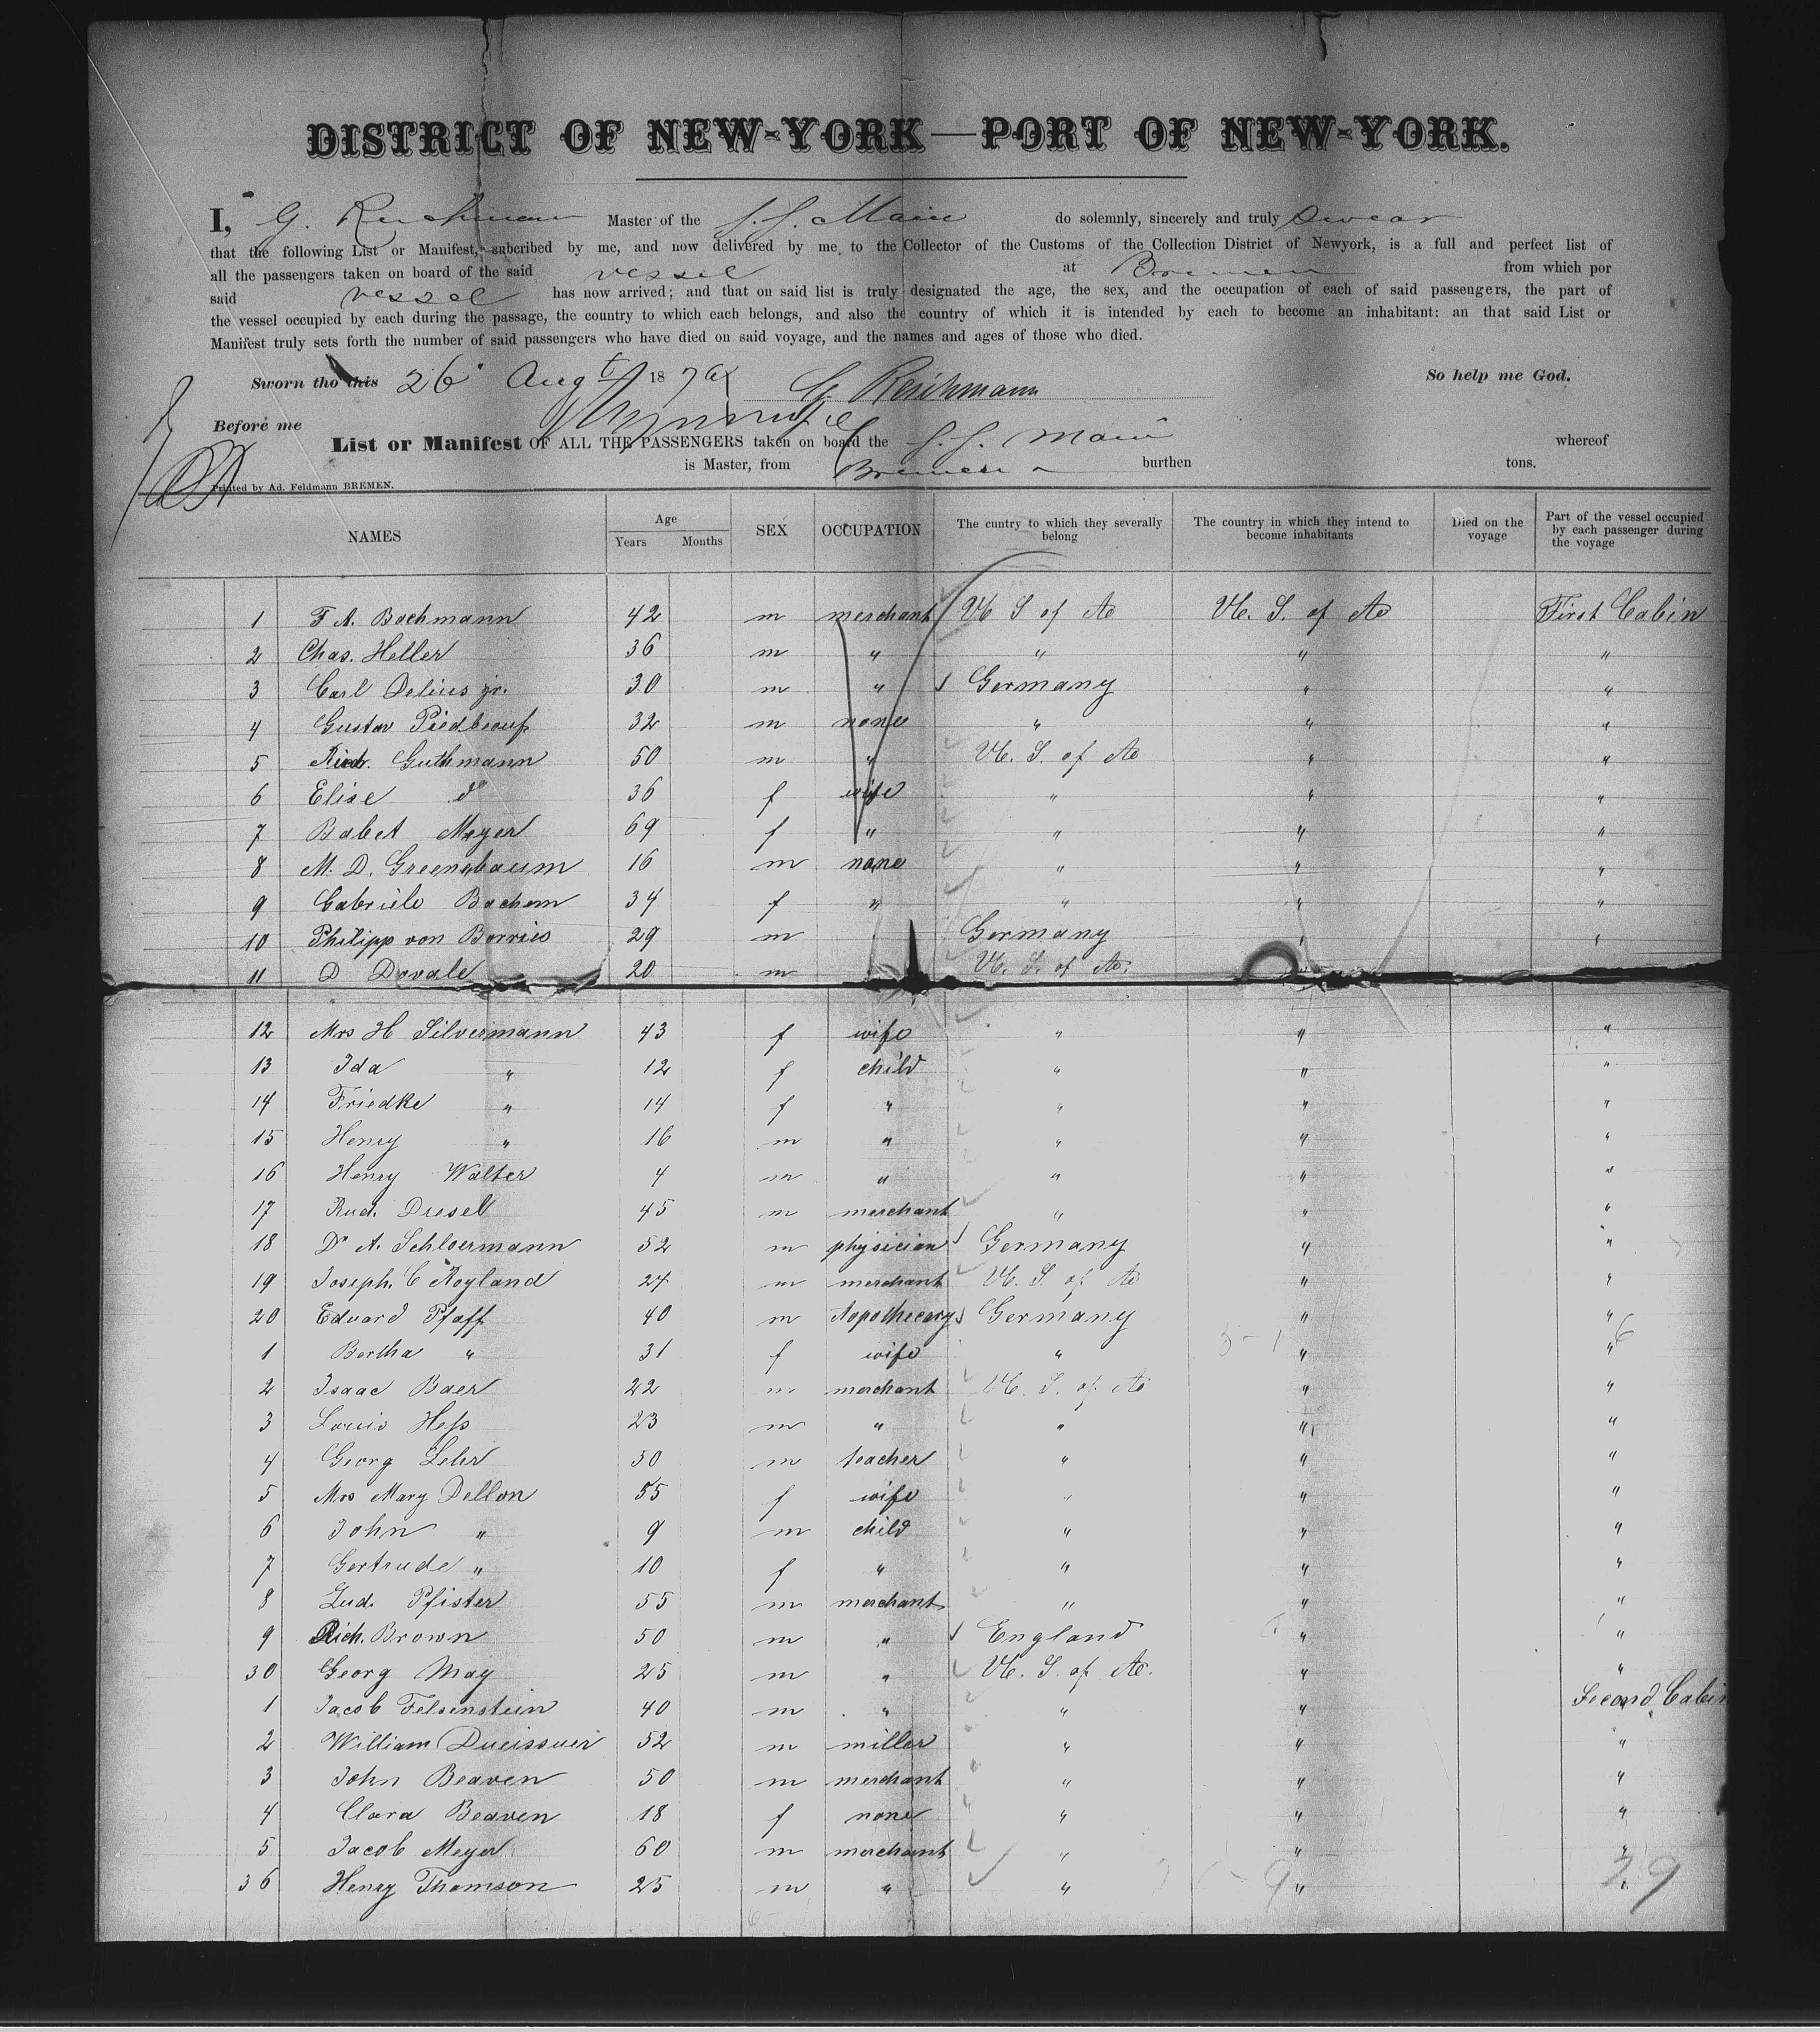 DISTRICT OF NEW-YORK—PORT OF NEW-YORK.
I, G. Reichmann Master of the S.S. Main do solemnly, sincerely and truly swear
that the following List or Manifest, subcribed by me, and now delivered by me to the Collector of the Customs of the Collection District of Newyork, is a full and perfect list of
all the passengers taken on board of the said vessel at Bremen from which por
said vessel has now arrived; and that on said list is truly designated the age, the sex, and the occupation of each of said passengers, the part of
the vessel occupied by each during the passage, the country to which each belongs, and also the country of which it is intended by each to become an inhabitant: an that said List or
Manifest truly sets forth the number of said passengers who have died on said voyage, and the names and ages of those who died.
Sworn tho this 26 Augt 187 G. Reichmann So help me God.
Before me
List or Manifest OF ALL THE PASSENGERS taken on board the S.S. Main whereof
is Master, from Bremen burthen tons.
Printed by Ad. Feldmann BREMEN.
NAMES Age Years Months SEX OCCUPATION The cuntry to which they severally belong The country in which they intend to become inhabitants Died on the voyage Part of the vessel occupied by each passenger during the voyage
1 F A. Bachmann 42 m merchant U S of A U. S. of A First Cabin
2 Chas. Heller 36 m " " " "
3 Carl Delius jr. 30 m " Germany " "
4 Gustav Piedboeuf 32 m none " " "
5 Guthmann 50 m " U. S. of A " "
6 Elise do 36 f wife " " "
7 Babet Meyer 69 f " " " "
8 M. D. Greenebaum 16 m none " " "
9 Gabriele Bachem 34 f " " " "
10 Philipp von Borries 29 m Germany " "
11 D Dovale 20 m U. S. of A.
12 Mrs H Silvermann 43 f wife " " "
13 Ida " 12 f child " " "
14 Friedke " 14 f " " " "
15 Henry " 16 m " " " "
16 Henry Walter 4 m " " " "
17 Rud. Dresel 45 m merchant " " "
18 Dr A. Schloermann 52 m physician Germany " "
19 Joseph. C Royland 24 m merchant U. S. of A " "
20 Eduard Pfaff 40 m Apothecary Germany " "
1 Bertha " 31 f wife " " "
2 Isaac Baer 22 m merchant U. S. of A " "
3 Louis Heſs 23 m " " " "
4 Georg 50 m teacher " " "
5 Mrs Mary Dellon 55 f wife " " "
6 John " 9 m child " " "
7 Gertrude " 10 f " " " "
8 Lud. Pfister 55 m merchant " " "
9 Rich. Brown 50 m " England " "
30 Georg May 25 m " U. S. of A. " "
1 Jacob Felsenstein 40 m " " " Second Cabin
2 William 52 m miller " " "
3 John Beaven 50 m merchant " " "
4 Clara Beaven 18 f none " " "
5 Jacob Meyer 60 m merchant " " "
36 Henry Thomson 25 m " " " "